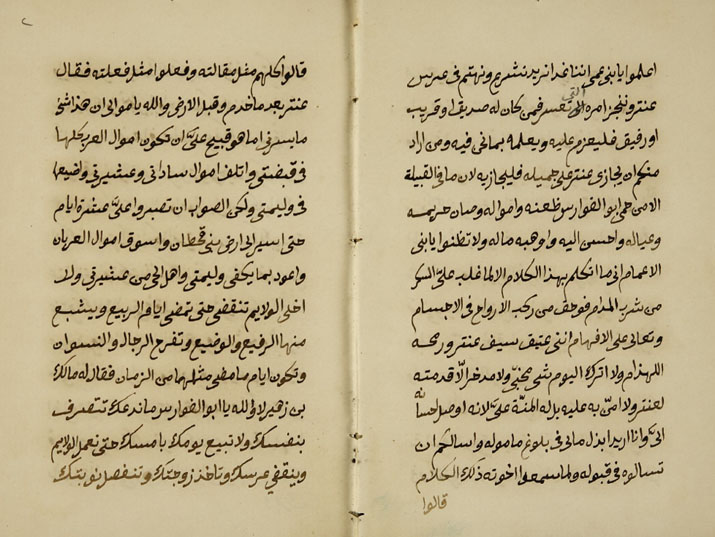 اعلموا يا بنى عمى اننا غدا نريد نشرع ونهتم فى عرس
عنتر وننجز امره التى تعسر فمن كان له صديق او قريب
او رفيق فليعزم عليه ويعلمه بمانى فيه ومن اراد
منكم ان يجازى عنتر على جميله فليجازيه لان ما فى القبيلة
الا من حمى ابو الفوارس ظعنه وامواله وصان حريمه
وعياله واحسن اليه واوهبه ماله ولا تظنوا يا بنى
الاعمام انى ما اتكلم بهذا الكلام الا لما غلب على السكر
من شرب المدام فوحق من ركب الارواح فى الاجسام
وتعالى على الافهام اننى عتيق سيف عنتر ورمحه
اللهذام ولا اترك اليوم شى مخبى ولا مدخر الا قدمته
لعنتر ولا امن به عليه بل له المنة على لانه اوصل احسانه
الى وانا اريد ابذل مالى فى بلوغ ماموله واسالكم ان
تسالوه فى قبوله ولما سمعوا اخوته ذلك الكلام
قالوا
٢
قالوا كلهم مثل مقالته وفعلوا مثل فعلته فقال
عنتر بعد ما خدم وقبل الارض والله يا موالى ان هذا شى
ما يسرنى اما هو قبيح على ان تكون اموال العرب كلها
فى قبضتى واتلف اموال ساداتى وعشيرتى واضيعها
فى وليمتى ولكن الصواب ان تصبروا على عشرة ايام
حتى اسير الى ارض بنى قحطان واسوق اموال العربان
واعود بما يكفى وليمتى واهل الحى من عشيرتى ولا
اخلى الولايم تنقضى حتى تمضى ايام الربيع ويشبع
منها الرفيع والوضيع وتفرح الرجال والنسوان
وتكون ايام ما مضى مثلها من الزمان فقال له مالك
بن زهير لا والله يا ابو الفوارس ما ندعك تتصرف
بنفسك ولا تبيع يومك بامسك حتى نعمل الولايم
وينقضي عرسك وتاخذ زوجتك وتنفصل نوبتك